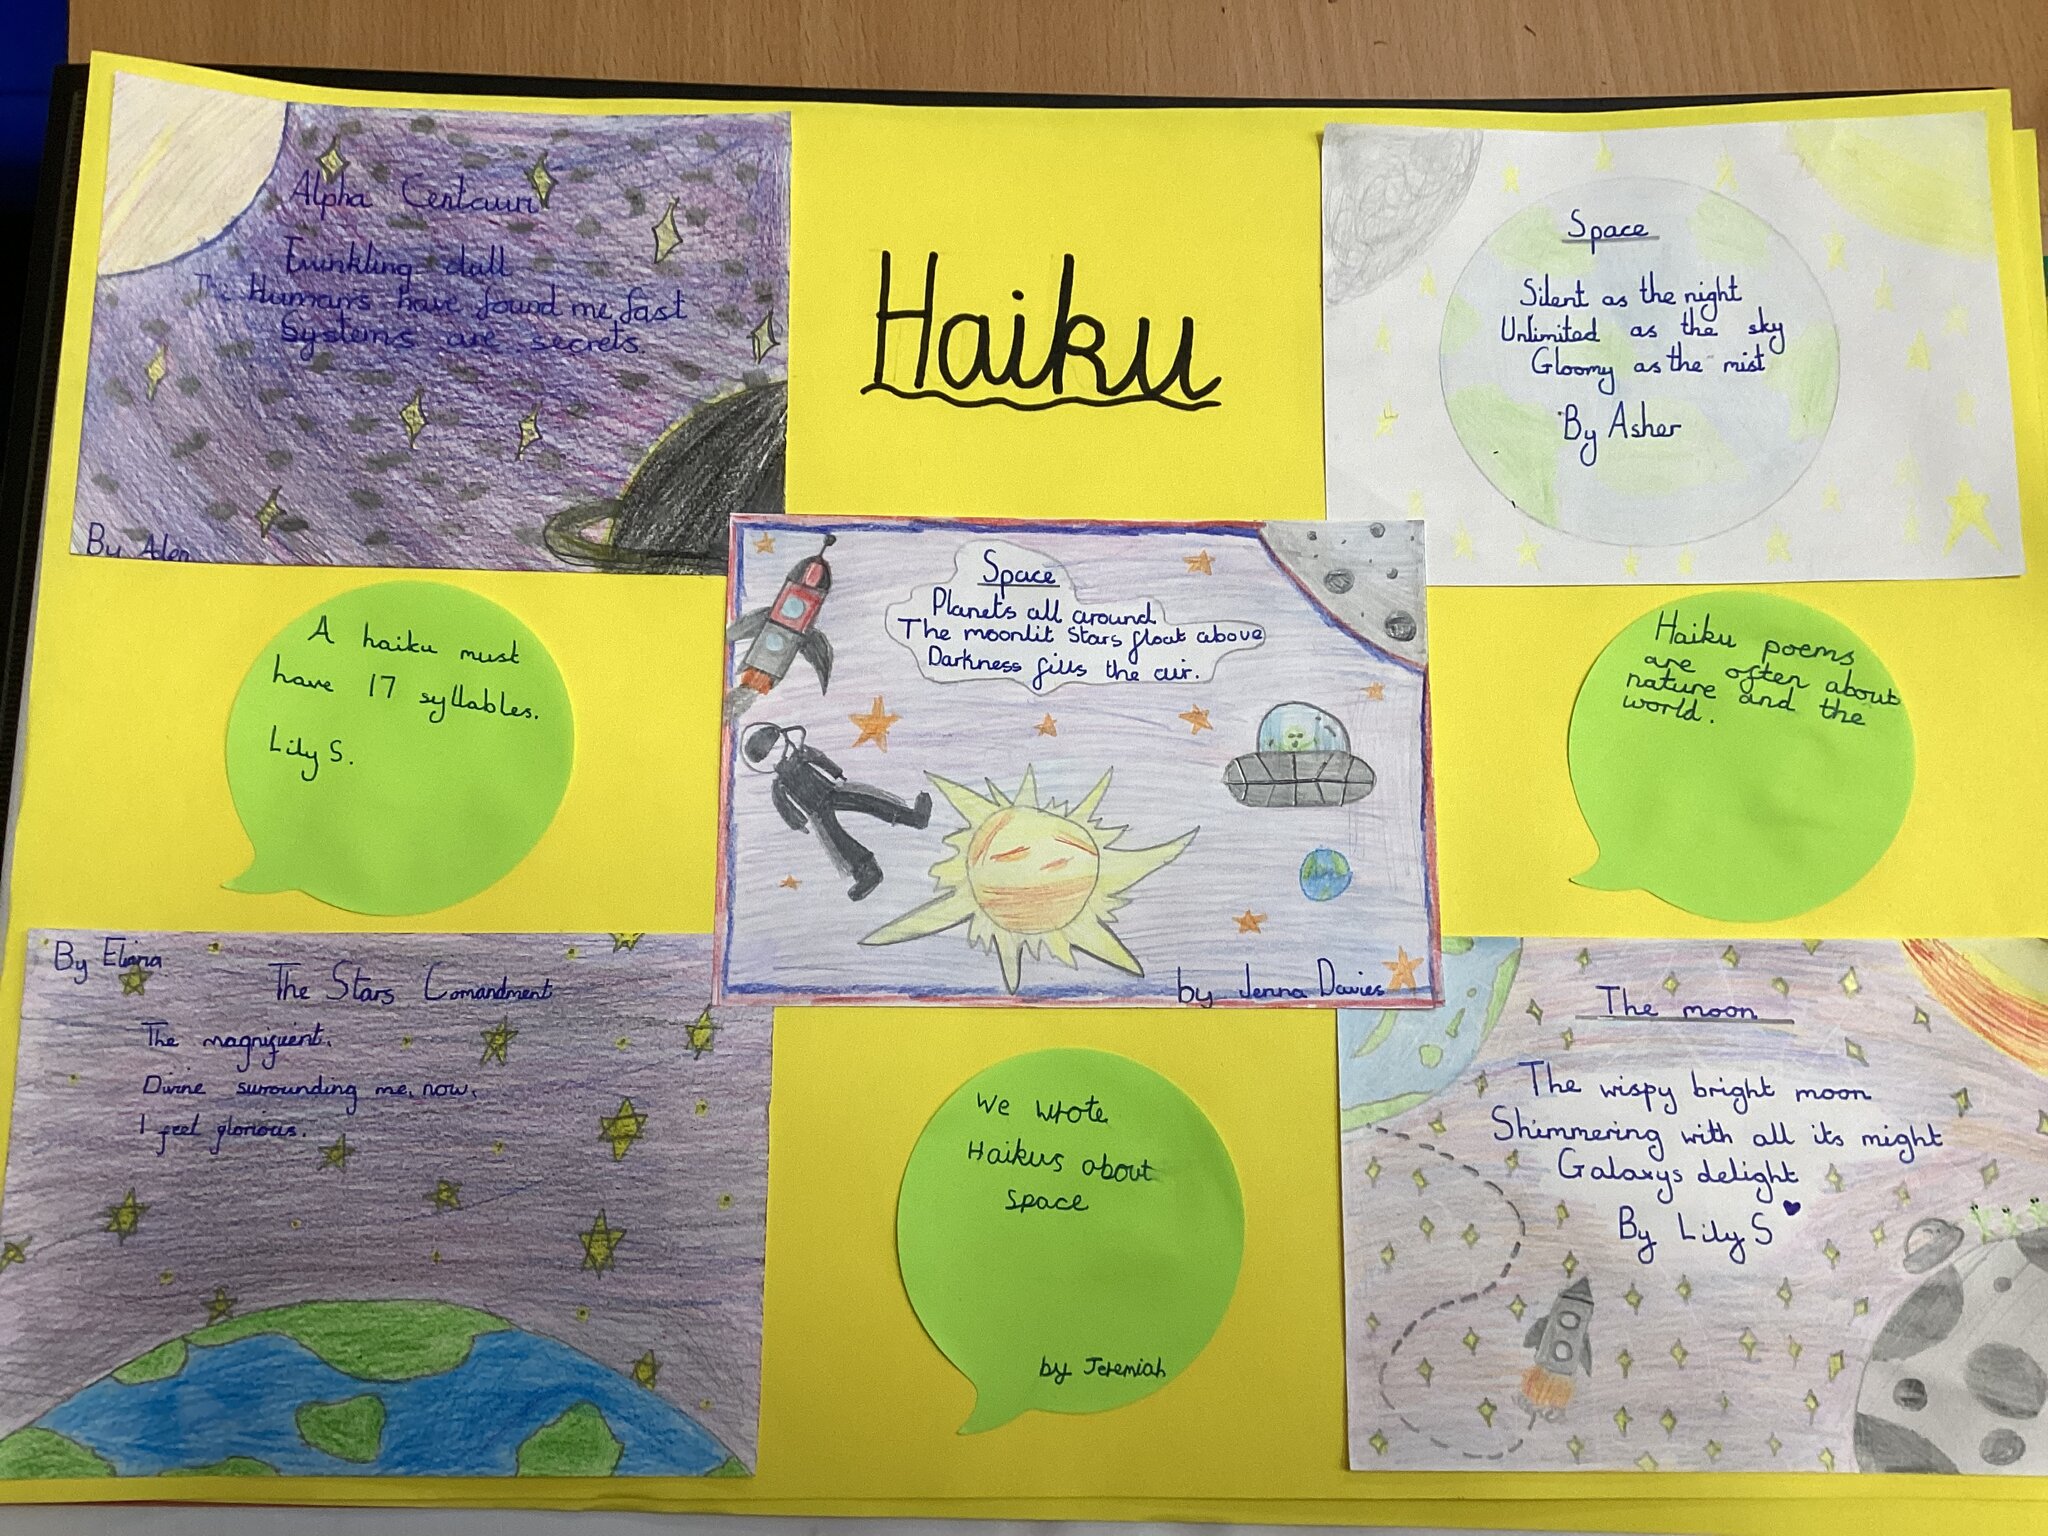 Alpha Centauri
Twinkling dull
Humans have found me fast
Systems are secrets.
By Alen
Haiku
Space
Silent as the night
Unlimited as the sky
Gloomy as the mist
By Asher
A haiku must
have 17 syllables.
Lily S.
Space
Planets all around
The moonlit stars float above
Darkness fills the air.
by Jenna Davies
Haiku poems
are often about
nature and the
world.
By Eliana
The Stars Comandment
The magnificent.
Divine surrounding me, now,
I feel glorious.
We wrote
Haikus about
Space
by Jeremiah
The moon
The wispy bright moon
Shimmering with all its might
Galaxys delight
By Lily S